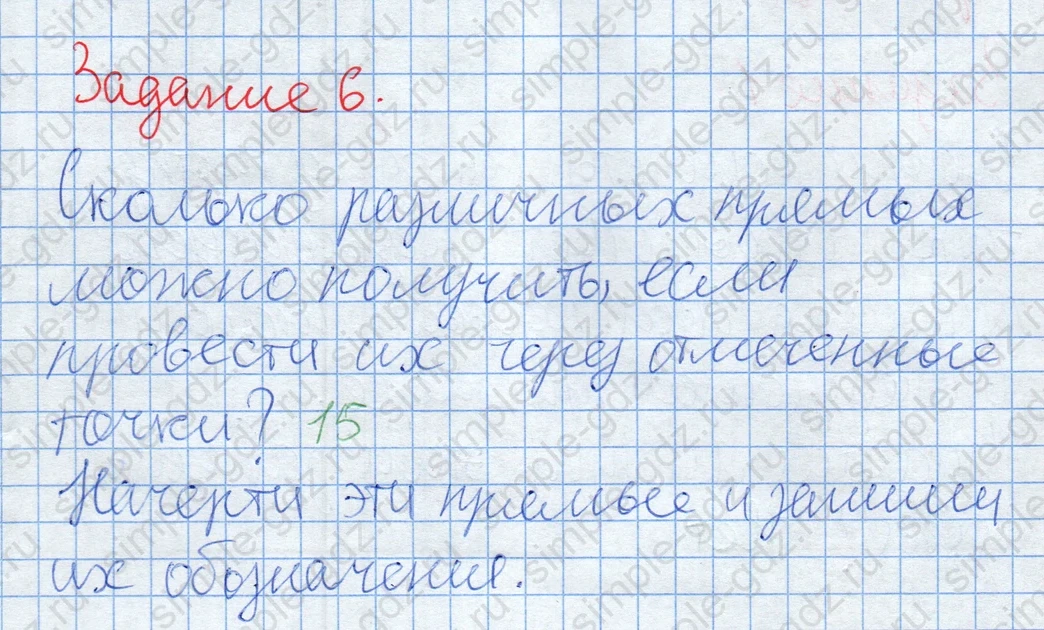 Задание 6.
Сколько различных прямых
можно получить, если
провести их через отмеченные
точки? 15
Начерти эти прямые и запиши
их обозначения.